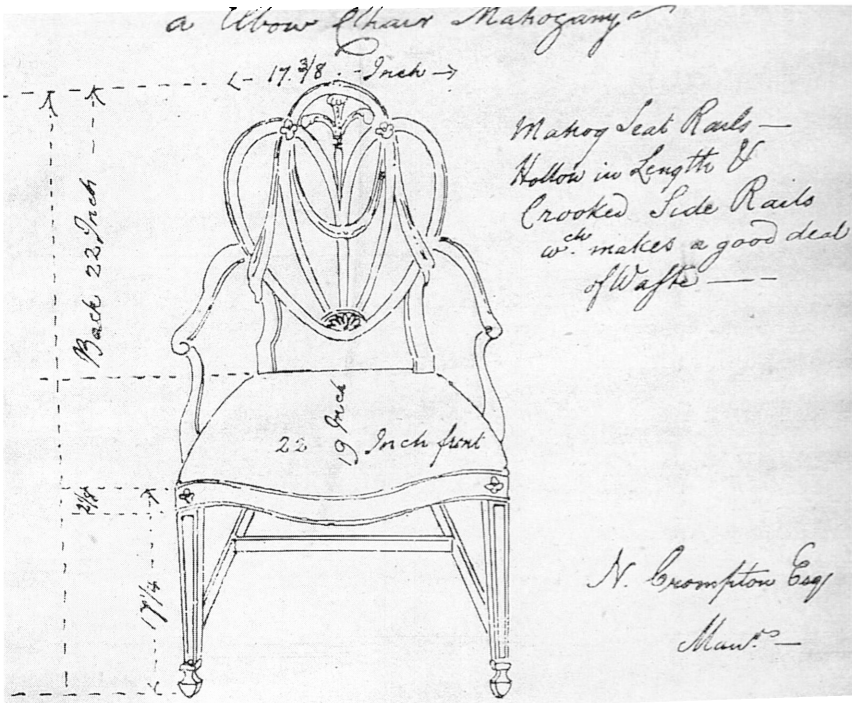 a Elbow Chair Mahogany
17 3/8 Inch
Mahog Seat Rails —
Hollow in Length &
Crooked Side Rails
wch. makes a good deal
of Waste — —
Back 22 Inch
19 Inch
22 Inch front
2 1/8
17 1/4
N. Crompton Esq